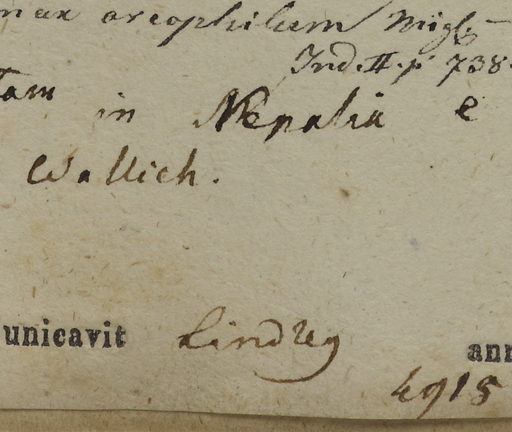 oreophilum Wight
Ind. II. p. 738.
Tam in Nepalia e
Wallich.
unicavit Lindley ann
4915